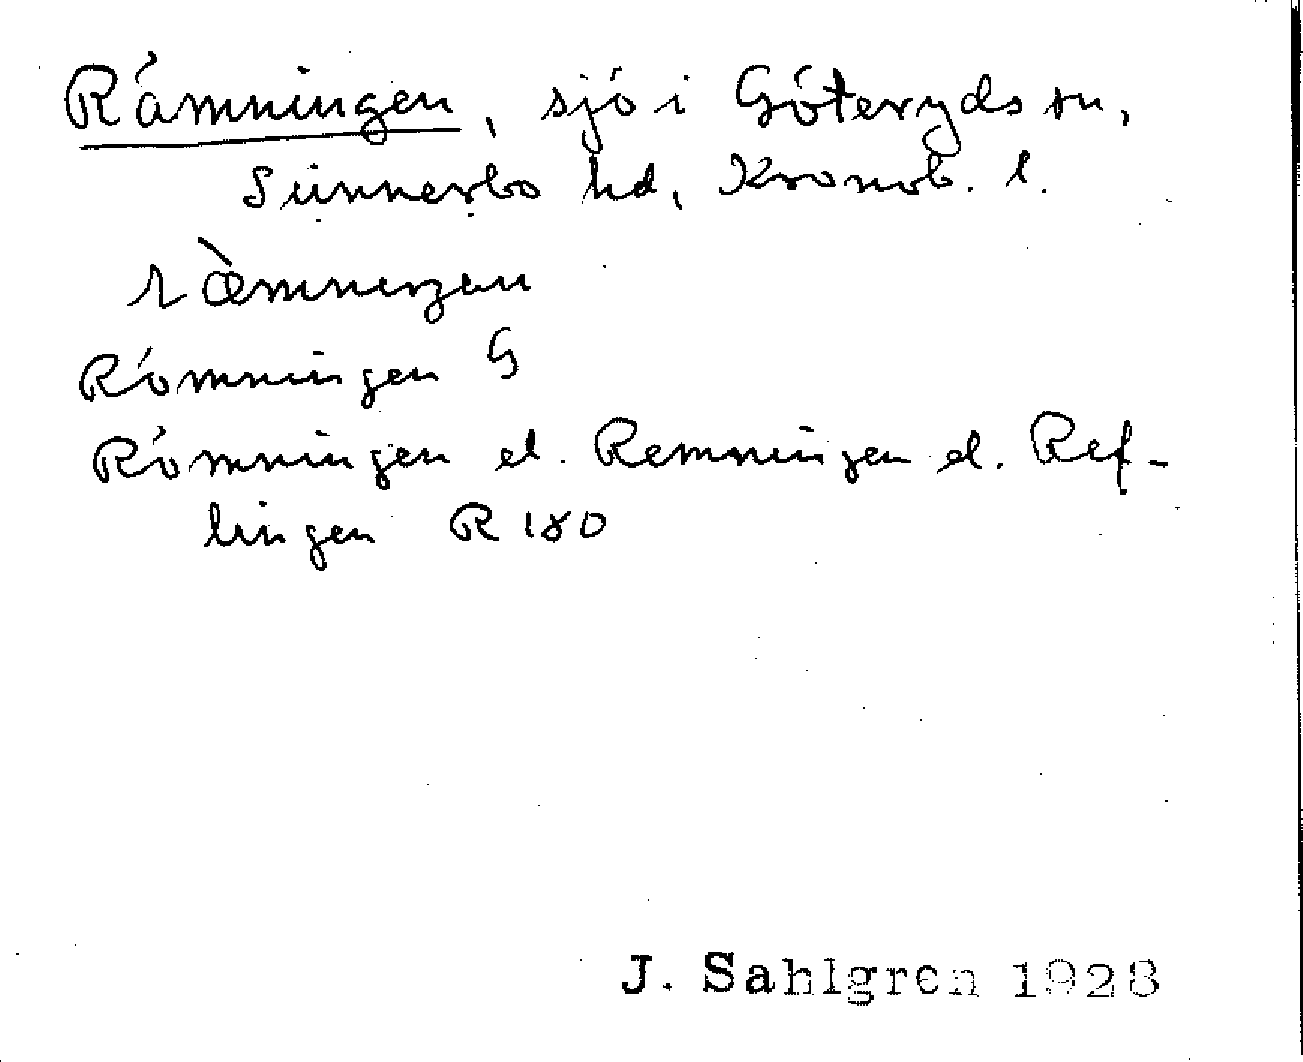 Rämningen, sjö i Göteryds sn,
Sunnerbo hd, Kronob. l.
ræ̀mneŋen
Römningen G
Römningen el. Remningen el. Ref-
lingen R 180
J. Sahlgren 1928